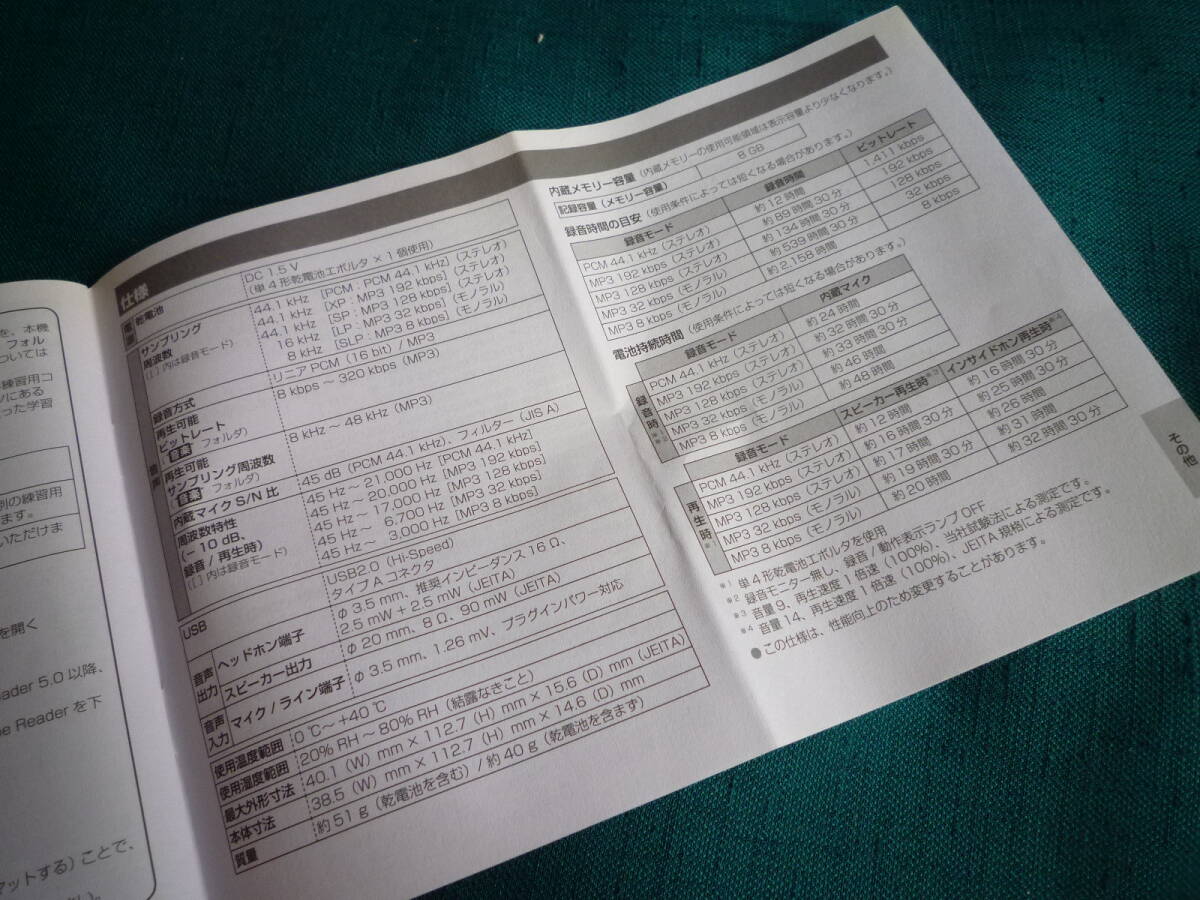 を、本機
フォル
ついては
練習用コ
ツにある
った学習
別の練習用
ます。
いただけま
を開く
ader 5.0 以降、
be Reader を下
マットする）ことで、
仕様
電源
乾電池
DC 1.5 V
（単4形乾電池エボルタ × 1 個使用）
音声
サンプリング
周波数
（[ ] 内は録音モード）
44.1 kHz [PCM : PCM 44.1 kHz]（ステレオ）
44.1 kHz [XP : MP3 192 kbps]（ステレオ）
44.1 kHz [SP : MP3 128 kbps]（ステレオ）
16 kHz [LP : MP3 32 kbps]（モノラル）
8 kHz [SLP : MP3 8 kbps]（モノラル）
録音方式
リニア PCM (16 bit) / MP3
再生可能
ビットレート
（音楽 フォルダ）
8 kbps ～ 320 kbps (MP3)
再生可能
サンプリング周波数
（音楽 フォルダ）
8 kHz ～ 48 kHz (MP3)
内蔵マイク S/N 比
45 dB (PCM 44.1 kHz)、フィルター (JIS A)
周波数特性
(− 10 dB、
録音 / 再生時)
（[ ] 内は録音モード）
45 Hz ～ 21,000 Hz [PCM 44.1 kHz]
45 Hz ～ 20,000 Hz [MP3 192 kbps]
45 Hz ～ 17,000 Hz [MP3 128 kbps]
45 Hz ～ 6,700 Hz [MP3 32 kbps]
45 Hz ～ 3,000 Hz [MP3 8 kbps]
USB
USB2.0 (Hi-Speed)
タイプ A コネクタ
音声出力
ヘッドホン端子
φ 3.5 mm、推奨インピーダンス 16 Ω、
2.5 mW + 2.5 mW (JEITA)
スピーカー出力
φ 20 mm、8 Ω、90 mW (JEITA)
音声入力
マイク / ライン端子
φ 3.5 mm、1.26 mV、プラグインパワー対応
使用温度範囲
0 ℃～ +40 ℃
使用湿度範囲
20% RH ～ 80% RH（結露なきこと）
最大外形寸法
40.1 (W) mm × 112.7 (H) mm × 15.6 (D) mm (JEITA)
本体寸法
38.5 (W) mm × 112.7 (H) mm × 14.6 (D) mm
質量
約 51 g（乾電池を含む）/ 約 40 g（乾電池を含まず）
内蔵メモリー容量（内蔵メモリーの使用可能領域は表示容量より少なくなります。）
記録容量（メモリー容量） 8 GB
録音時間の目安（使用条件によっては短くなる場合があります。）
録音モード 録音時間 ビットレート
PCM 44.1 kHz（ステレオ） 約 12 時間 1,411 kbps
MP3 192 kbps（ステレオ） 約 89 時間 30 分 192 kbps
MP3 128 kbps（ステレオ） 約 134 時間 30 分 128 kbps
MP3 32 kbps（モノラル） 約 539 時間 30 分 32 kbps
MP3 8 kbps（モノラル） 約 2,158 時間 8 kbps
電池持続時間（使用条件によっては短くなる場合があります。）
録音モード 内蔵マイク
録音時※1 ※2
PCM 44.1 kHz（ステレオ） 約 24 時間
MP3 192 kbps（ステレオ） 約 32 時間 30 分
MP3 128 kbps（ステレオ） 約 33 時間
MP3 32 kbps（モノラル） 約 46 時間
MP3 8 kbps（モノラル） 約 48 時間
録音モード スピーカー再生時※3 インサイドホン再生時※4
再生時※1
PCM 44.1 kHz（ステレオ） 約 12 時間 約 16 時間 30 分
MP3 192 kbps（ステレオ） 約 16 時間 30 分 約 25 時間 30 分
MP3 128 kbps（ステレオ） 約 17 時間 約 26 時間
MP3 32 kbps（モノラル） 約 19 時間 30 分 約 31 時間
MP3 8 kbps（モノラル） 約 20 時間 約 32 時間 30 分
※1 単4形乾電池エボルタを使用
※2 録音モニター無し、録音 / 動作表示ランプ OFF
※3 音量 9、再生速度 1 倍速（100%）、当社試験法による測定です。
※4 音量 14、再生速度 1 倍速（100%）、JEITA 規格による測定です。
●この仕様は、性能向上のため変更することがあります。
その他